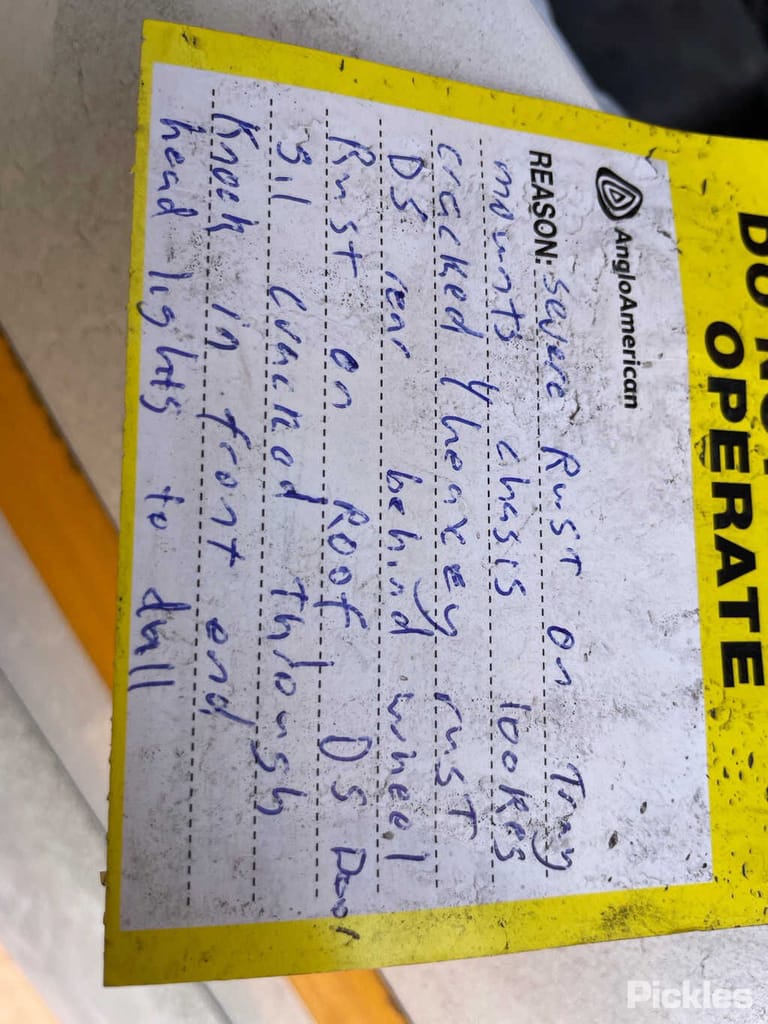 DO NOT
OPERATE
AngloAmerican
REASON: severe Rust on Tray
mounts chasis lookes
cracked / heavey rust
DS rear behind wheel
Rust on Roof DS Door
sil cracked through
Knock in front end
head lights to dull
Pickles